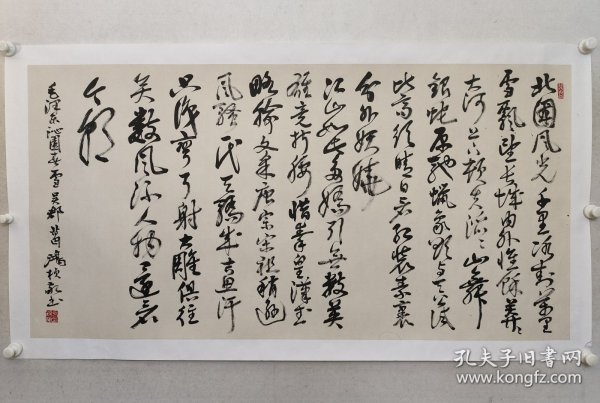 北国风光千里冰封万里
雪飘望长城内外惟余莽々
大河上下顿失滔々山舞
银蛇原驰蜡象欲与天公试
比高须晴日看红装素裹
分外妖娆
江山如此多娇引无数英
雄竞折腰惜秦皇汉武
略输文采唐宗宋祖稍逊
风骚一代天骄成吉思汗
只识弯弓射大雕俱往
矣数风流人物还看
今朝
毛泽东沁园春雪吴郡
孔夫子旧书网
www.kongfz.com